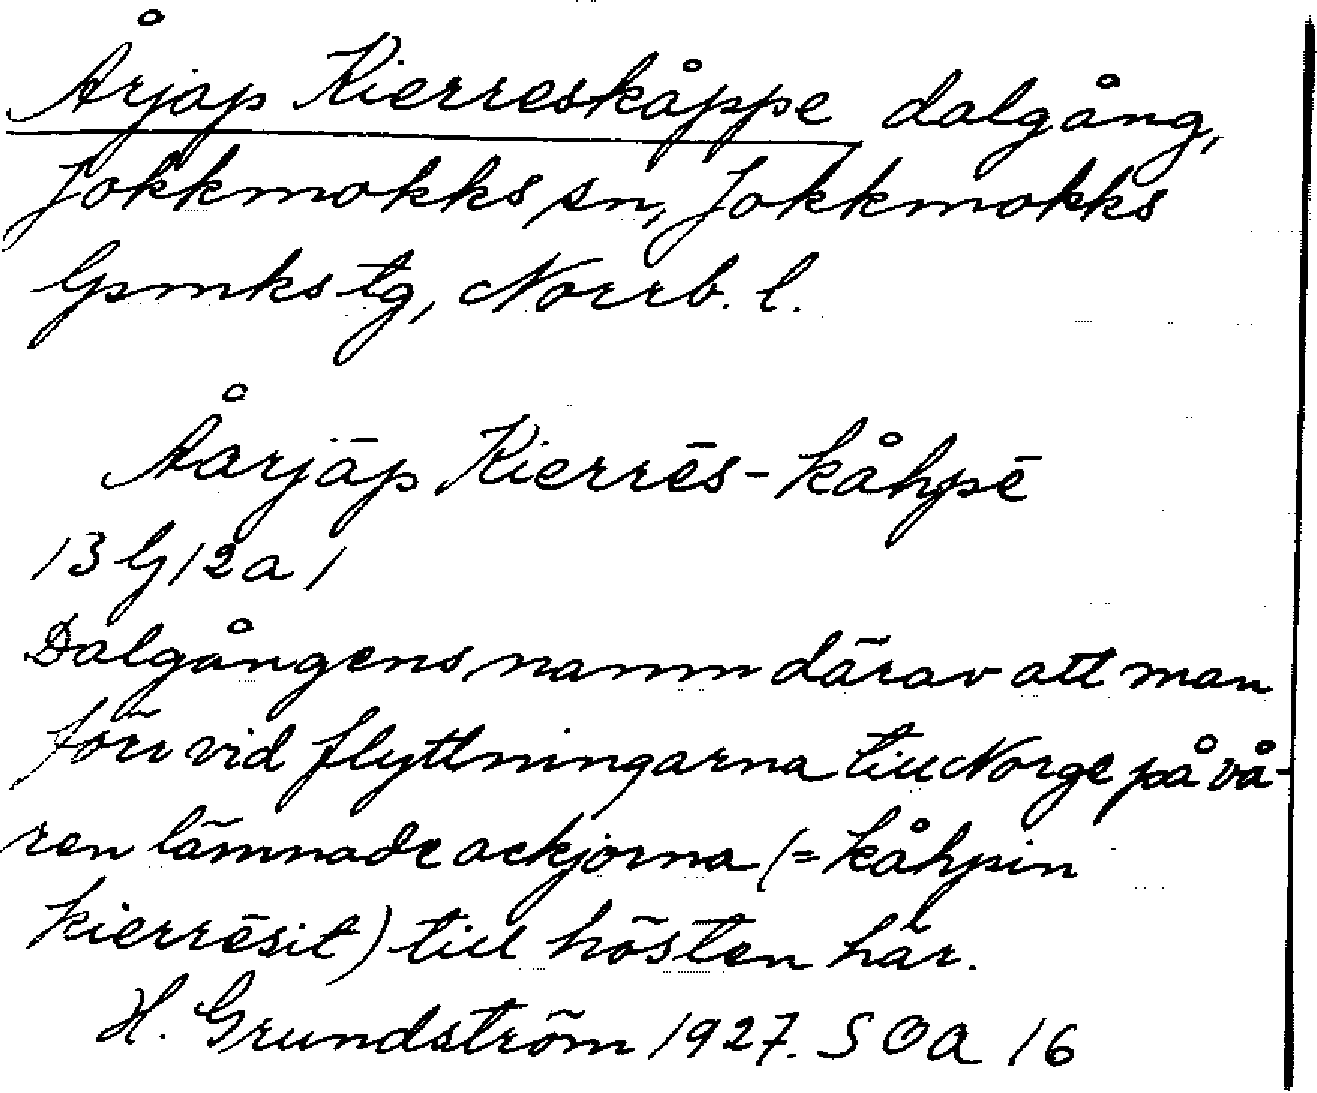 Årjap Kierreskåppe dalgång,
Jokkmokks sn, Jokkmokks
lpmks tg, Norrb. l.
Åarjāp Kierrēs-kåhpē
13 G 12 a 1
Dalgångens namn därav att man
förr vid flyttningarna till Norge på vå-
ren lämnade ackjorna (= kåhpin
kierrēsit) till hösten här.
H. Grundström 1927. SOA 16